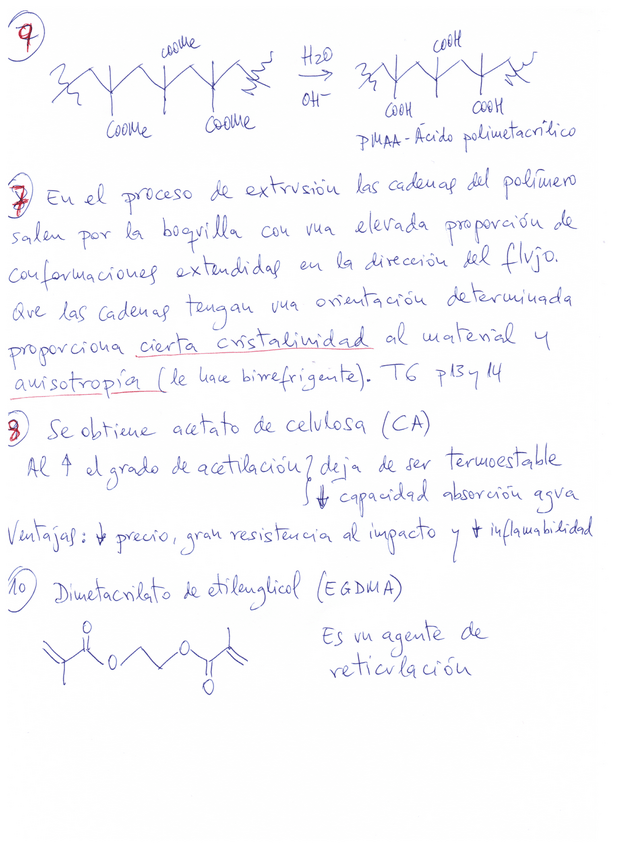 9
COOMe COOMe COOMe H2O OH⁻ COOH COOH COOH
PMAA - Ácido polimetacrílico
7 En el proceso de extrusión las cadenas del polímero
salen por la boquilla con una elevada proporción de
conformaciones extendidas en la dirección del flujo.
Que las cadenas tengan una orientación determinada
proporciona cierta cristalinidad al material y
anisotropía (le hace birrefrigente). T6 p13 y 14
8 Se obtiene acetato de celulosa (CA)
Al ↑ el grado de acetilación { deja de ser termoestable
↓ capacidad absorción agua
Ventajas: ↓ precio, gran resistencia al impacto y ↓ inflamabilidad
10 Dimetacrilato de etilenglicol (EGDMA)
O O O O
Es un agente de
reticulación